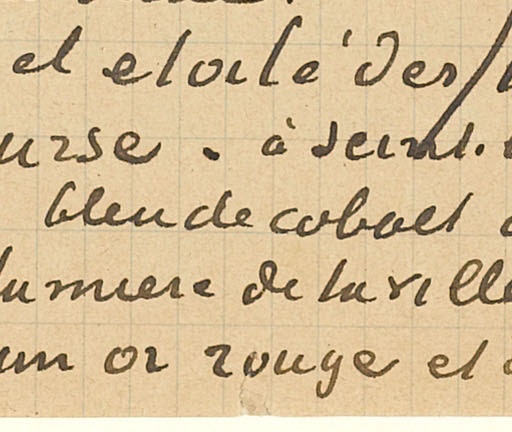 el etoilé des
urse. à
bleu de cobalt
lumiere de la ville
un or rouge et